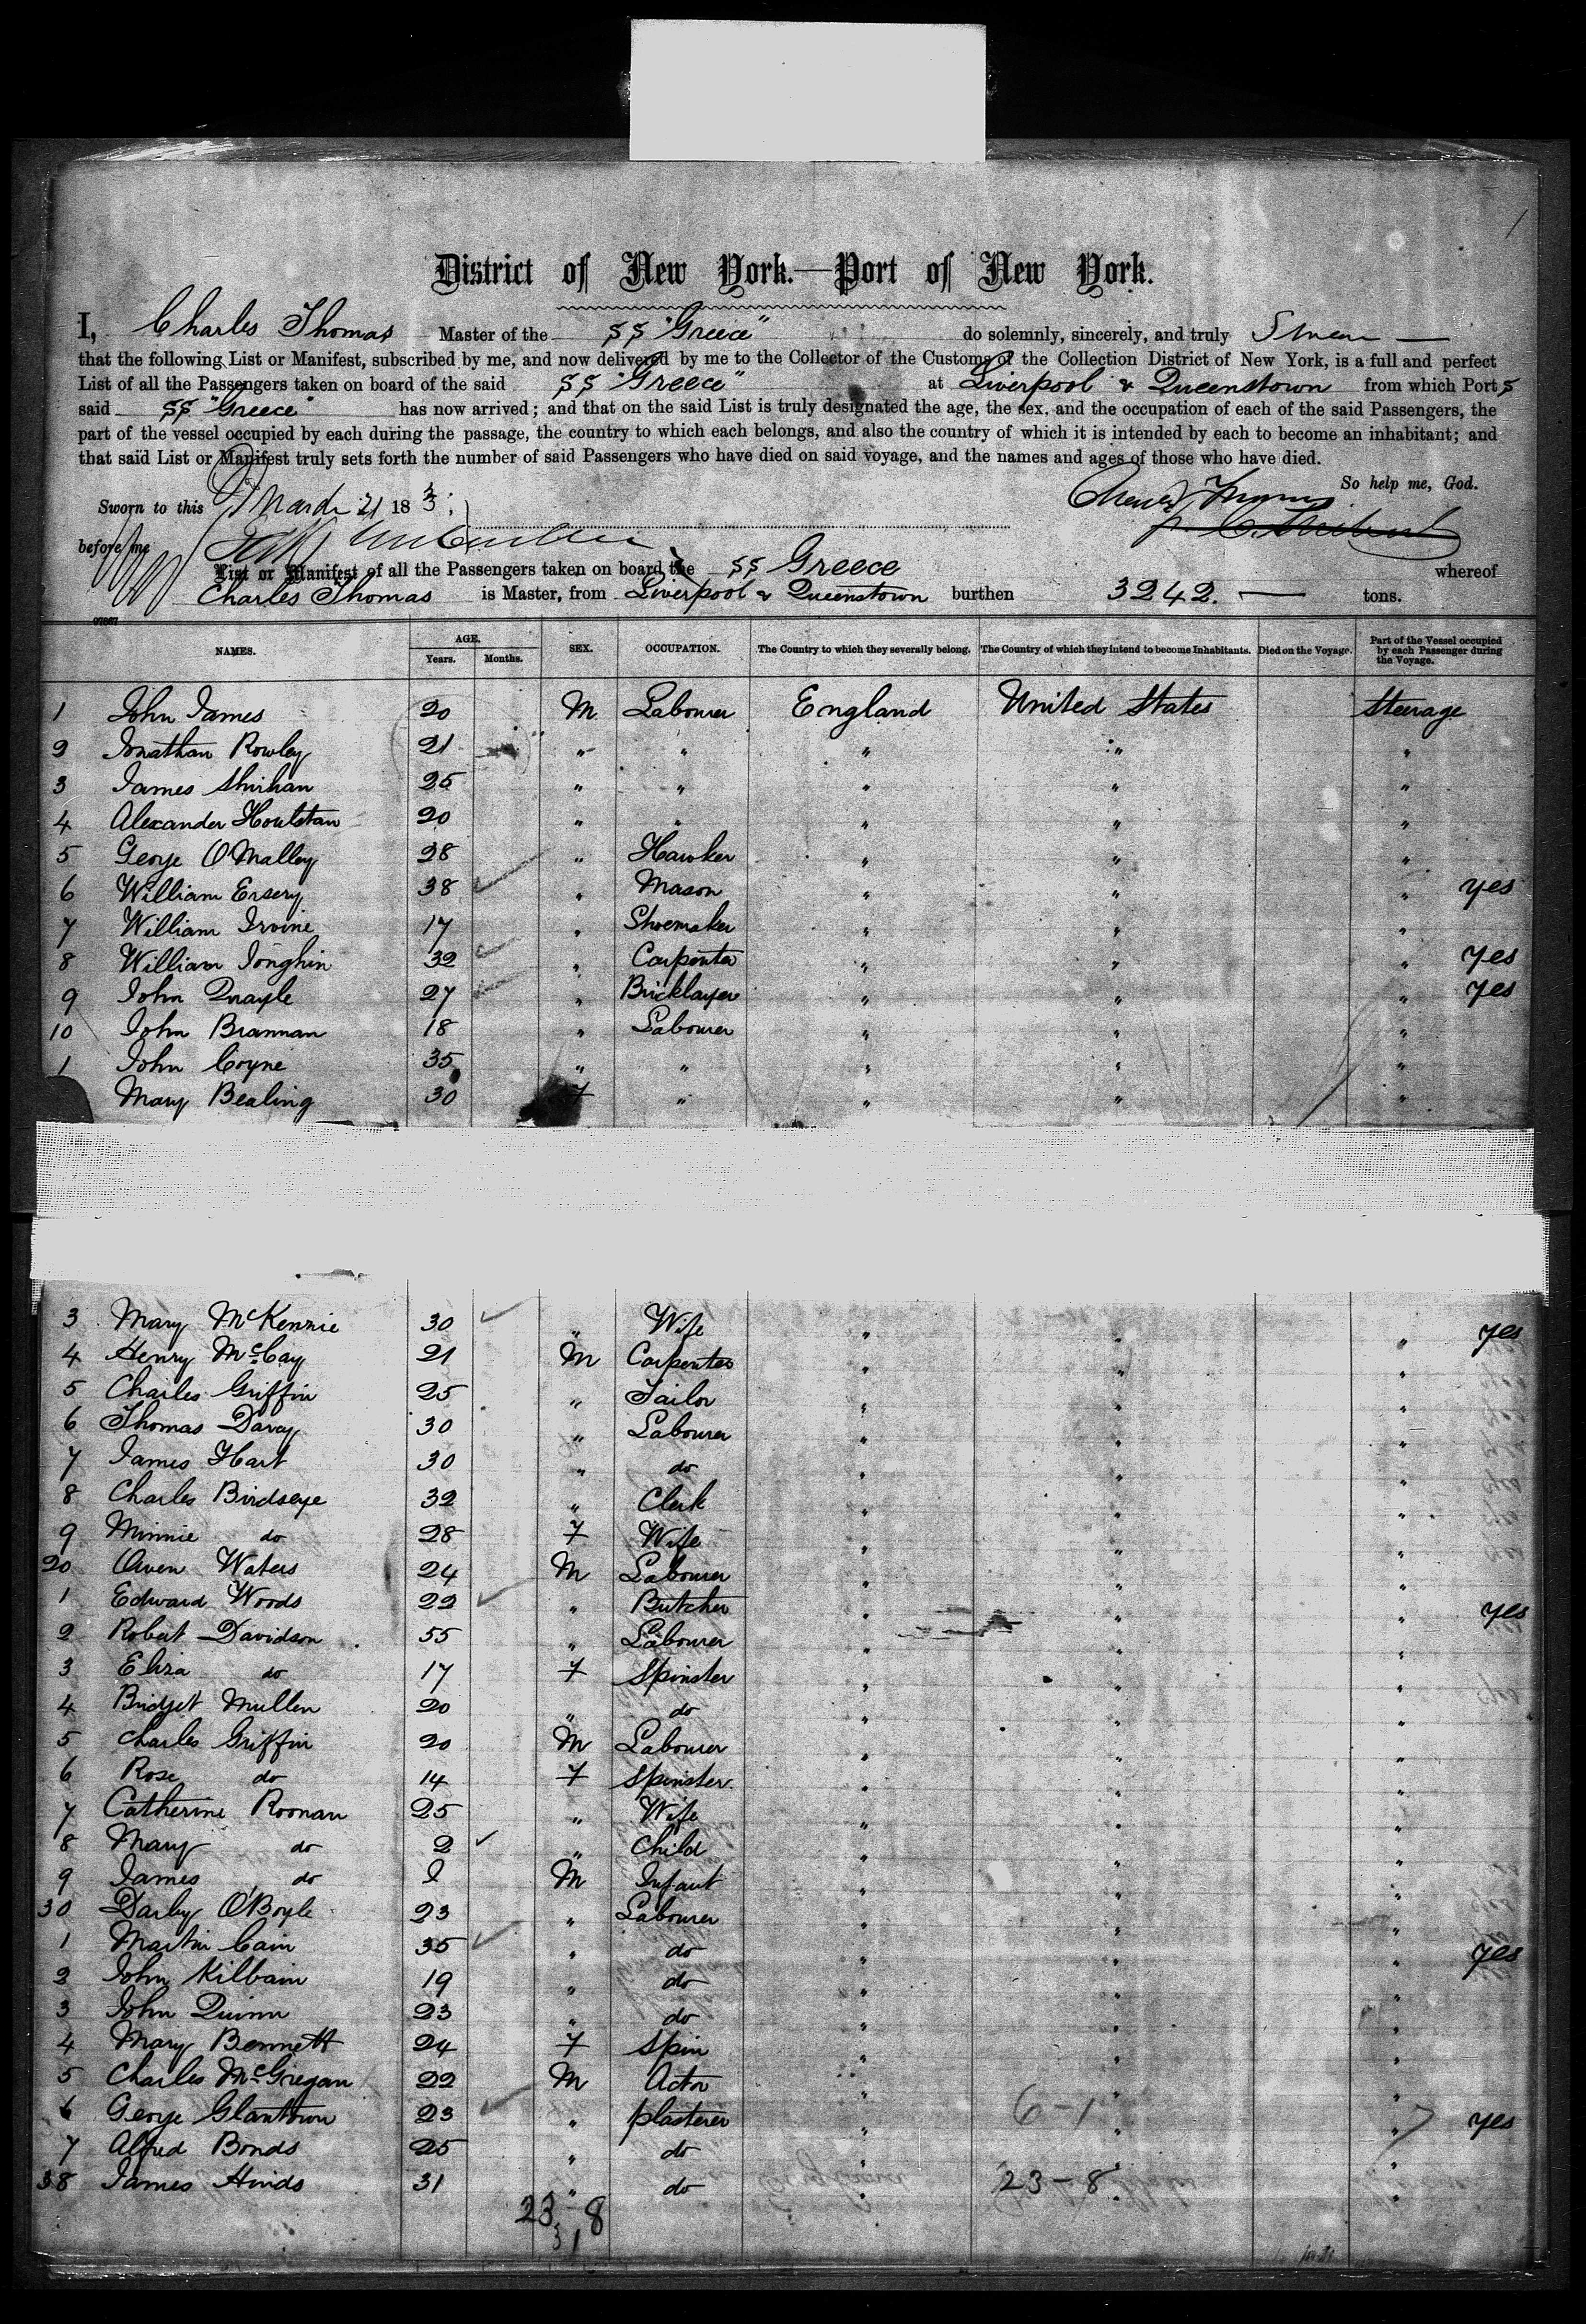 District of New York.—Port of New York.
I, Charles Thomas Master of the SS "Greece" do solemnly, sincerely, and truly Swear —
that the following List or Manifest, subscribed by me, and now delivered by me to the Collector of the Customs of the Collection District of New York, is a full and perfect
List of all the Passengers taken on board of the said SS "Greece" at Liverpool & Queenstown from which Ports
said SS "Greece" has now arrived; and that on the said List is truly designated the age, the sex, and the occupation of each of the said Passengers, the
part of the vessel occupied by each during the passage, the country to which each belongs, and also the country of which it is intended by each to become an inhabitant; and
that said List or Manifest truly sets forth the number of said Passengers who have died on said voyage, and the names and ages of those who have died.
So help me, God.
Sworn to this March 21 18
before me
List or Manifest of all the Passengers taken on board the SS Greece whereof
Charles Thomas is Master, from Liverpool & Queenstown burthen 3242. — tons.
NAMES. AGE. Years. Months. SEX. OCCUPATION. The Country to which they severally belong. The Country of which they intend to become Inhabitants. Died on the Voyage. Part of the Vessel occupied by each Passenger during the Voyage.
1 John James 20 M. Labourer England United States Steerage
2 Jonathan Rowley 21 " " " " "
3 James Shirhan 25 " " " " "
4 Alexander Houlstan 20 " " " " "
5 George O'Malley 28 " Hawker " " "
6 William Ersery 38 " Mason " " " yes
7 William Irvine 17 " Shoemaker " " "
8 William Jonghin 32 " Carpenter " " " yes
9 John Quayle 27 " Bricklayer " " " yes
10 John Brannan 18 " Labourer " " "
1 John Coyne 35 " " " " "
Mary Bealing 30 F " " " "
3 Mary McKennie 30 " Wife " " " yes
4 Henry McCay 21 M Carpenter " " "
5 Charles Griffin 25 " Tailor " " "
6 Thomas Darcy 30 " Labourer " " "
7 James Hart 30 " do " " "
8 Charles Birdseye 32 " Clerk " " "
9 Minnie do 28 F Wife " " "
20 Owen Waters 24 M Labourer " " "
1 Edward Woods 22 " Butcher " " " yes
2 Robert Davidson 55 " Labourer " " "
3 Eliza do 17 F Spinster " " "
4 Bridget Mullen 20 " do " " "
5 Charles Griffin 20 M Labourer " " "
6 Rose do 14 F Spinster " " "
7 Catherine Roonan 25 " Wife " " "
8 Mary do 2 " Child " " "
9 James do M Infant " " "
30 Darby O'Boyle 23 " Labourer " " "
1 Martin Cain 35 " do " " " yes
2 John Kilbain 19 " do " " "
3 John Quinn 23 " do " " "
4 Mary Bennett 24 F Spin " " "
5 Charles McGregan 22 M Actor " " "
6 George Glantown 23 " plasterer " 6-1 " " yes
7 Alfred Bonds 25 " do " " "
38 James Hinds 31 " do " 23-8 " "
23 - 8
31